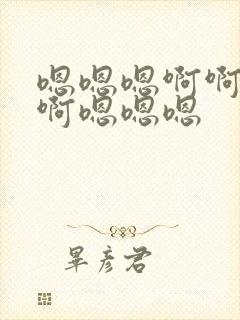 嗯嗯嗯啊啊
啊嗯嗯嗯
畢彦君